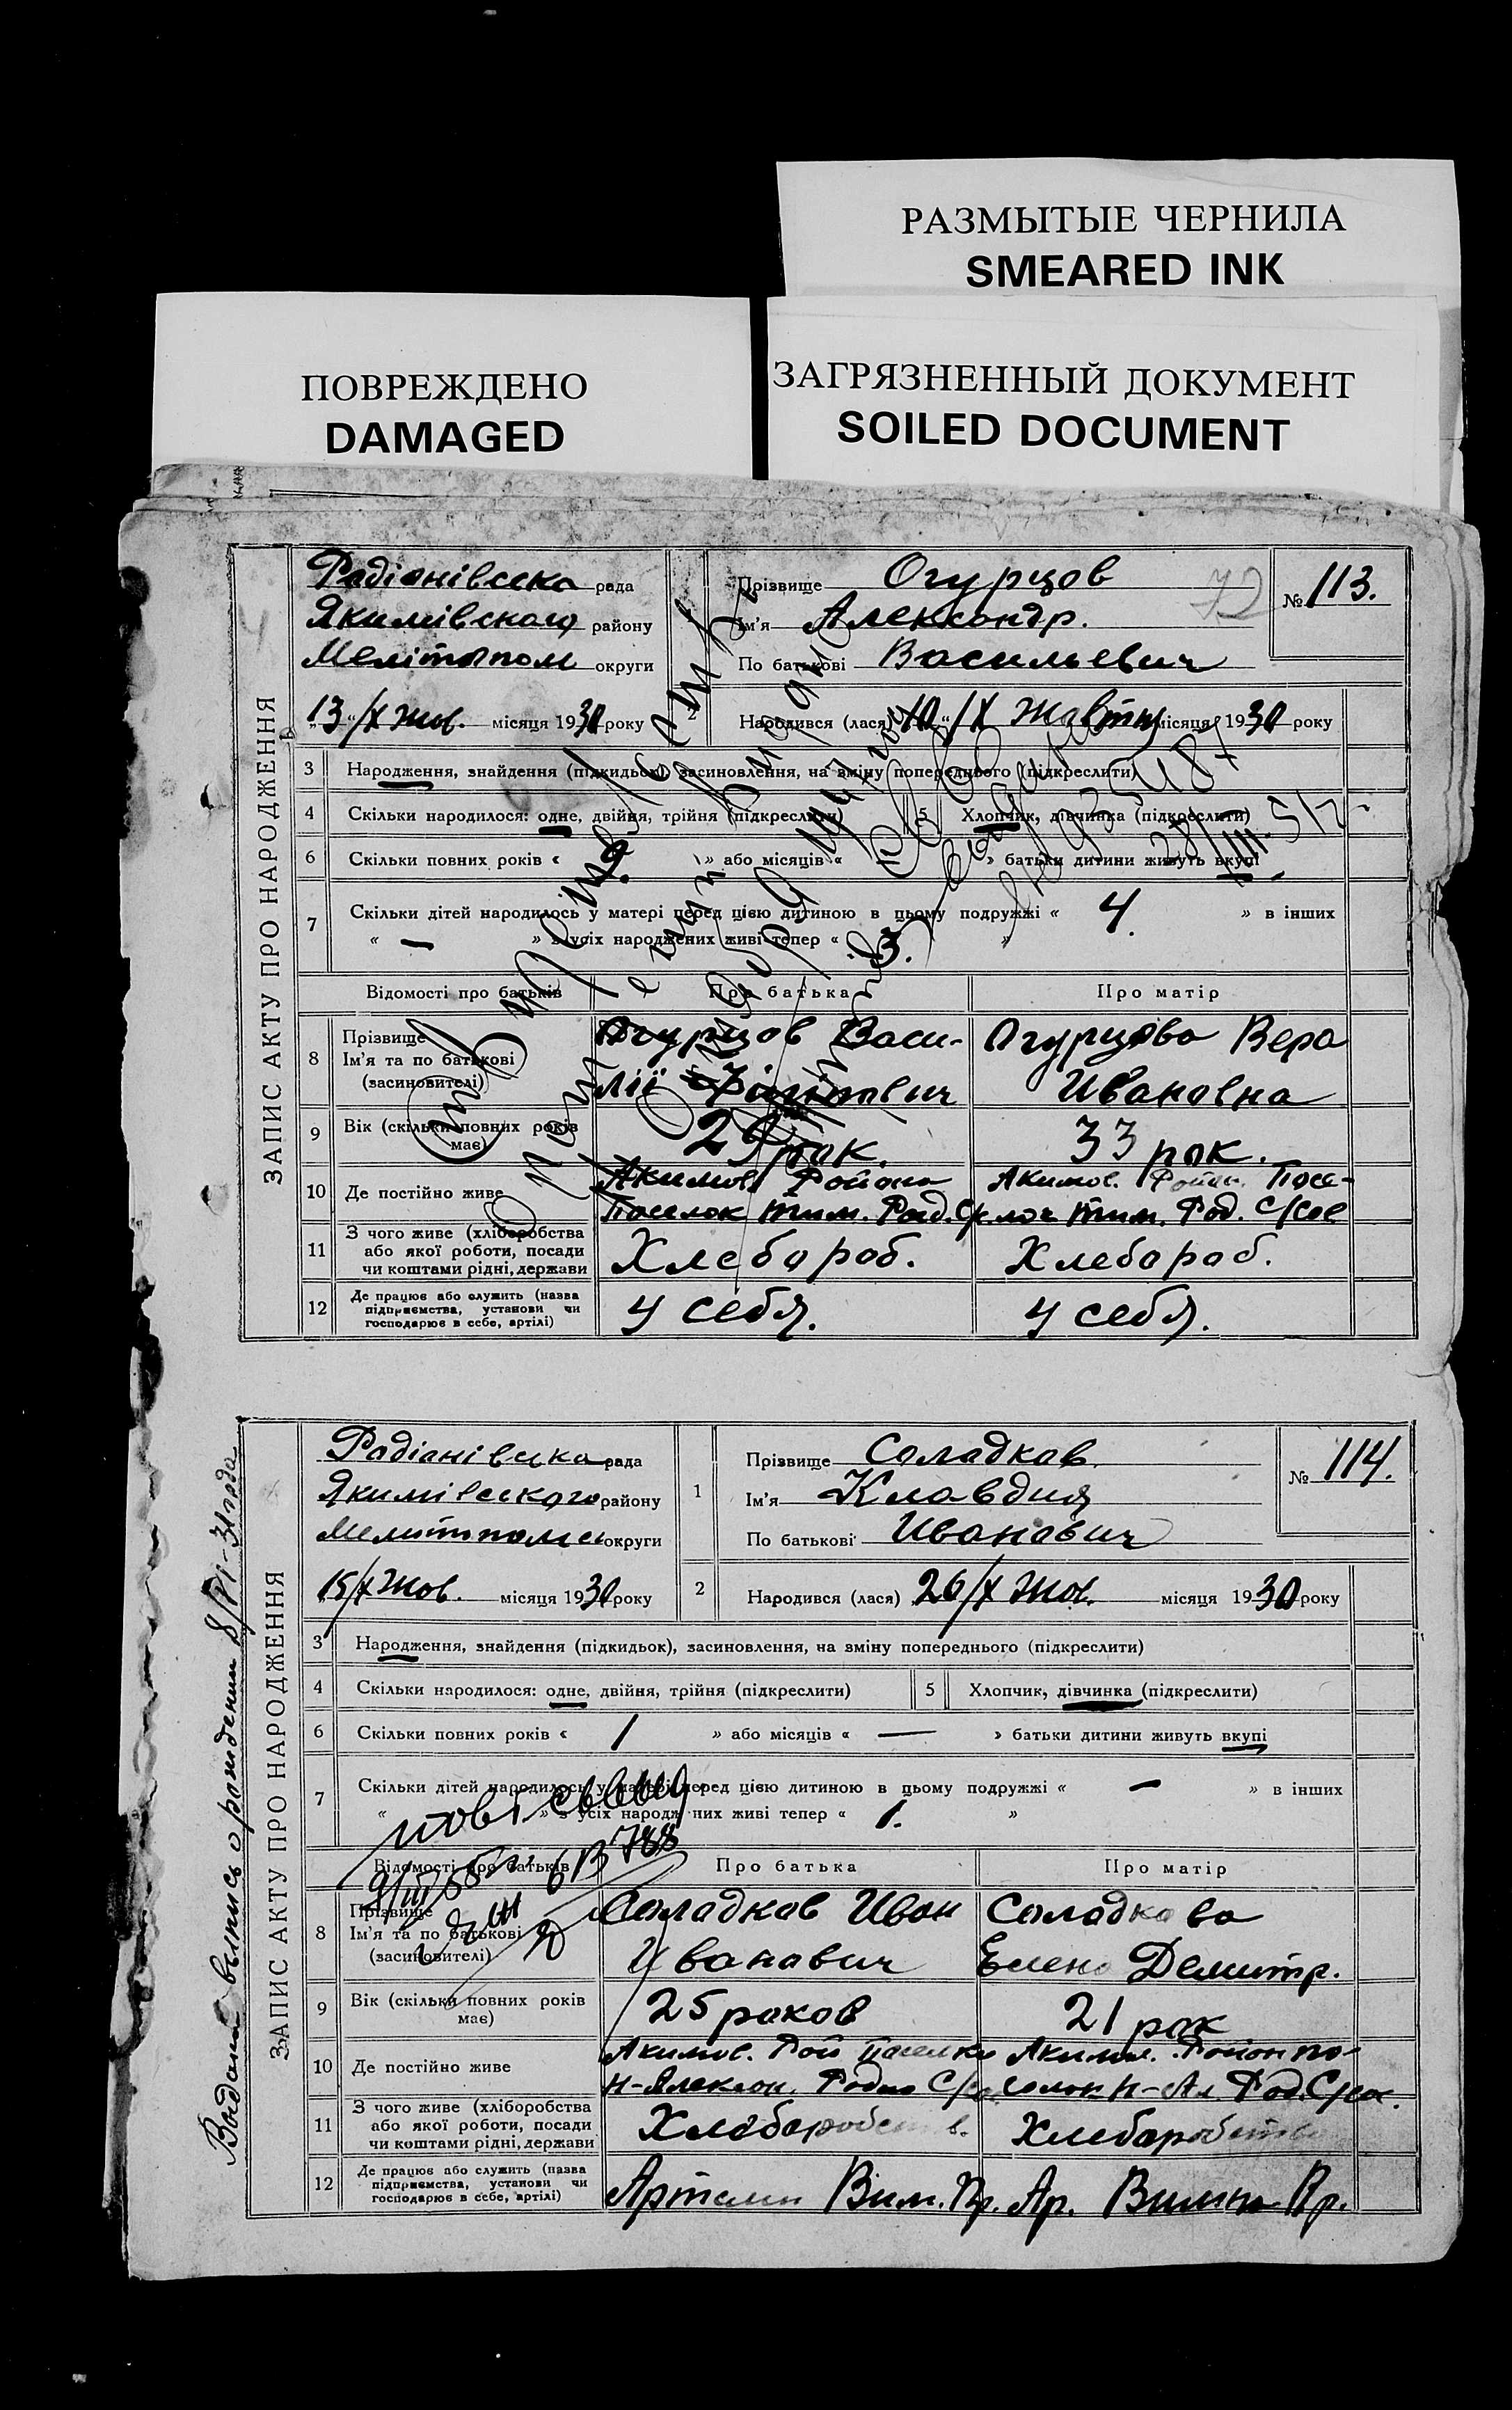 РАЗМЫТЫЕ ЧЕРНИЛА
SMEARED INK
ПОВРЕЖДЕНО
DAMAGED
ЗАГРЯЗНЕННЫЙ ДОКУМЕНТ
SOILED DOCUMENT
ЗАПИС АКТУ ПРО НАРОДЖЕННЯ
Радіанівська рада
Якимівского району
Мелітопол округи
Прізвище Огурцов
Ім'я Александр.
По батькові Васильевич
72
№ 113.
"13"/X Жов. місяця 1930 року
2 Народився (лася) "10"/X Жовтня місяця 1930 року
3 Народження, знайдення (підкидьок), засиновлення, на зміну попереднього (підкреслити)
4 Скільки народилося: одне, двійня, трійня (підкреслити) 5 Хлопчик, дівчинка (підкреслити)
6 Скільки повних років « 9 » або місяців « — » батьки дитини живуть вкупі
7 Скільки дітей народилось у матері перед цією дитиною в цьому подружжі « 4. » в інших
« — » з усіх народжених живі тепер « 3. »
Відомості про батьків Про батька Про матір
8 Прізвище Ім'я та по батькові (засиновителі)
Огурцов Васи- Огурцова Вера
лій Ивановна
9 Вік (скільки повних років має) 29 рок. 33 рок.
10 Де постійно живе
Акимов. Района Акимов. Посе-
Поселок Тим. Рад. лок Тим. Рад. С/сов
11 З чого живе (хліборобства або якої роботи, посади чи коштами рідні, держави Хлебороб. Хлебороб.
12 Де працює або служить (назва підприємства, установи чи господарює в себе, артілі) У себя. У себя.
ЗАПИС АКТУ ПРО НАРОДЖЕННЯ
Выдана выпись о рождении 8/VI-31 года
Радіанівська рада
Якимівського району
Мелитополь округи
1 Прізвище Саладков
Ім'я Клавдия
По батькові Иванович
№ 114.
15/X Жов. місяця 1930 року
2 Народився (лася) 26/X Жов. місяця 1930 року
3 Народження, знайдення (підкидьок), засиновлення, на зміну попереднього (підкреслити)
4 Скільки народилося: одне, двійня, трійня (підкреслити) 5 Хлопчик, дівчинка (підкреслити)
6 Скільки повних років « 1 » або місяців « — » батьки дитини живуть вкупі
7 Скільки дітей народилось у матері перед цією дитиною в цьому подружжі « — » в інших
« » з усіх народжених живі тепер « 1. »
Відомості про батьків Про батька Про матір
8 Прізвище Ім'я та по батькові (засиновителі)
Саладков Иван Саладкова
Иванович Елена Демитр.
9 Вік (скільки повних років має) 25 роков 21 рок
10 Де постійно живе
Акимов. Рай поселка Акимов. Район по-
Н-Алексан. Радио С/со. селок Н-Ал. Рад. С/сов.
11 З чого живе (хліборобства або якої роботи, посади чи коштами рідні, держави Хлеборобств. Хлеборобство
12 Де працює або служить (назва підприємства, установи чи господарює в себе, артілі) Артели Вим. Пр. Ар. Вимн Пр.